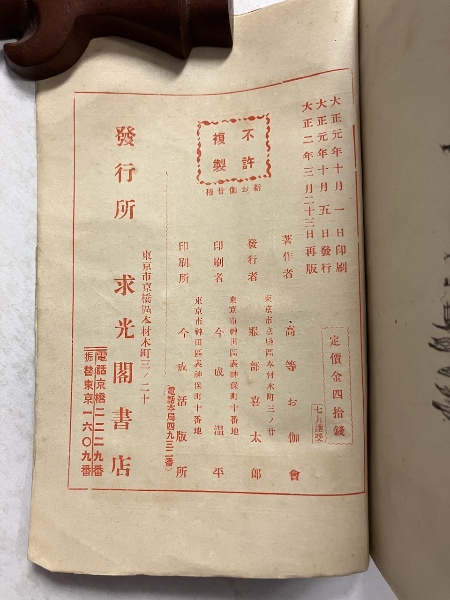 大正元年十月一日印刷
大正元年十月五日發行
大正二年三月二十三日再版
定價金四拾錢
不許
複製
新お伽廿種
著作者 高等お伽會
東京市京橋區本材木町三ノ廿
發行者 服部喜太郎
東京市神田區表神保町十番地
印刷者 今成温平
東京市神田區表神保町十番地
印刷所 今成活版所
(電話本局四九三二番)
東京市京橋區本材木町三ノ二十
發行所 求光閣書店
電話京橋二二二九番
振替東京一六〇九番